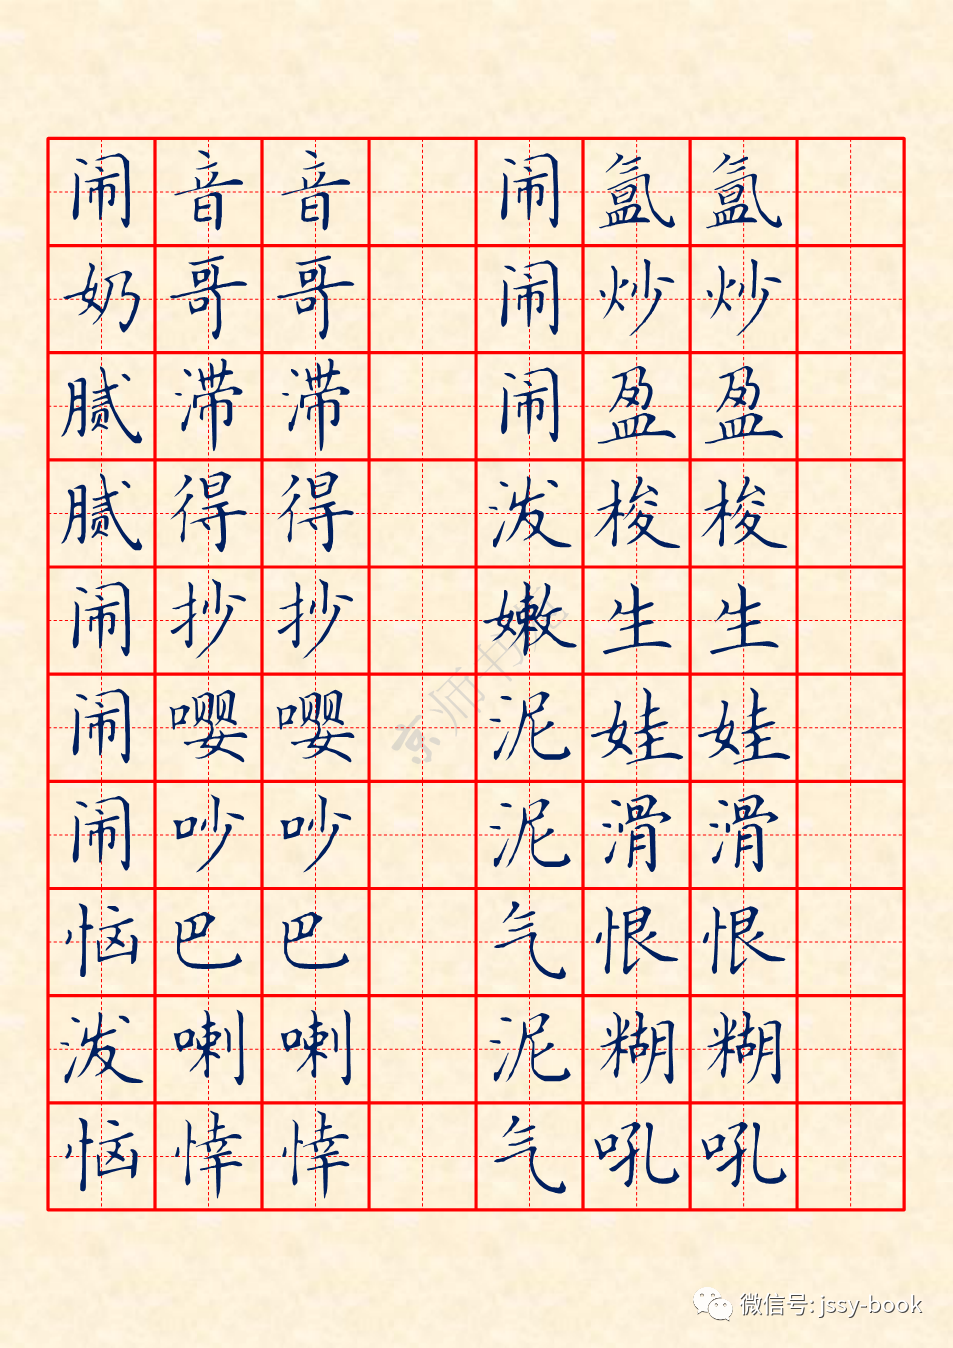 闹音音 闹氲氲
奶哥哥 闹炒炒
腻滞滞 闹盈盈
腻得得 泼梭梭
闹抄抄 嫩生生
闹嘤嘤 泥娃娃
闹吵吵 泥滑滑
恼巴巴 气恨恨
泼喇喇 泥糊糊
恼悻悻 气吼吼
京师书院
微信号: jssy-book